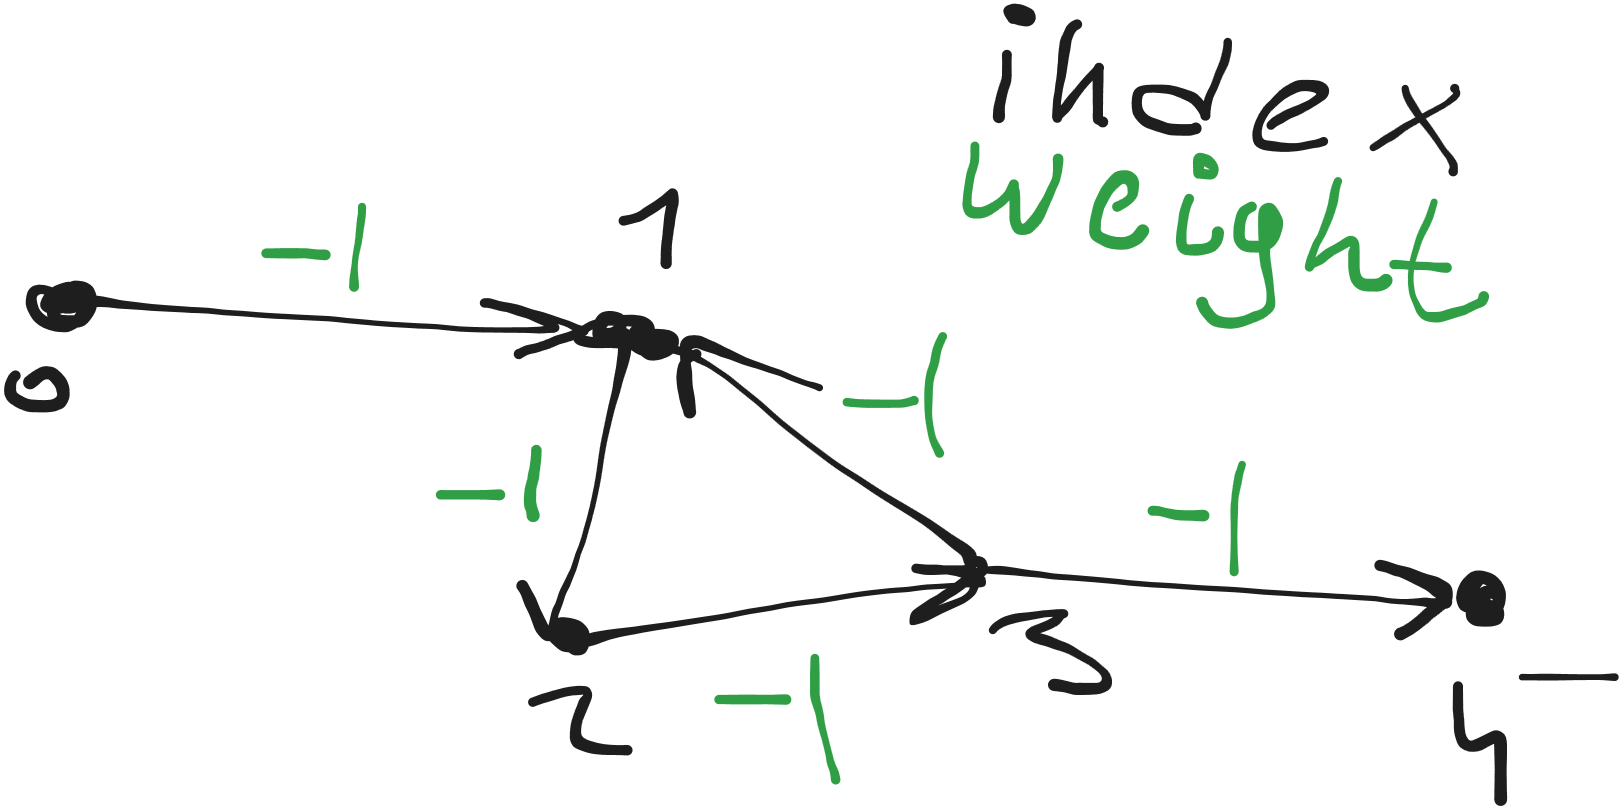 index
weight
-1
1
0
-1
-1
-1
3
2
-1
4